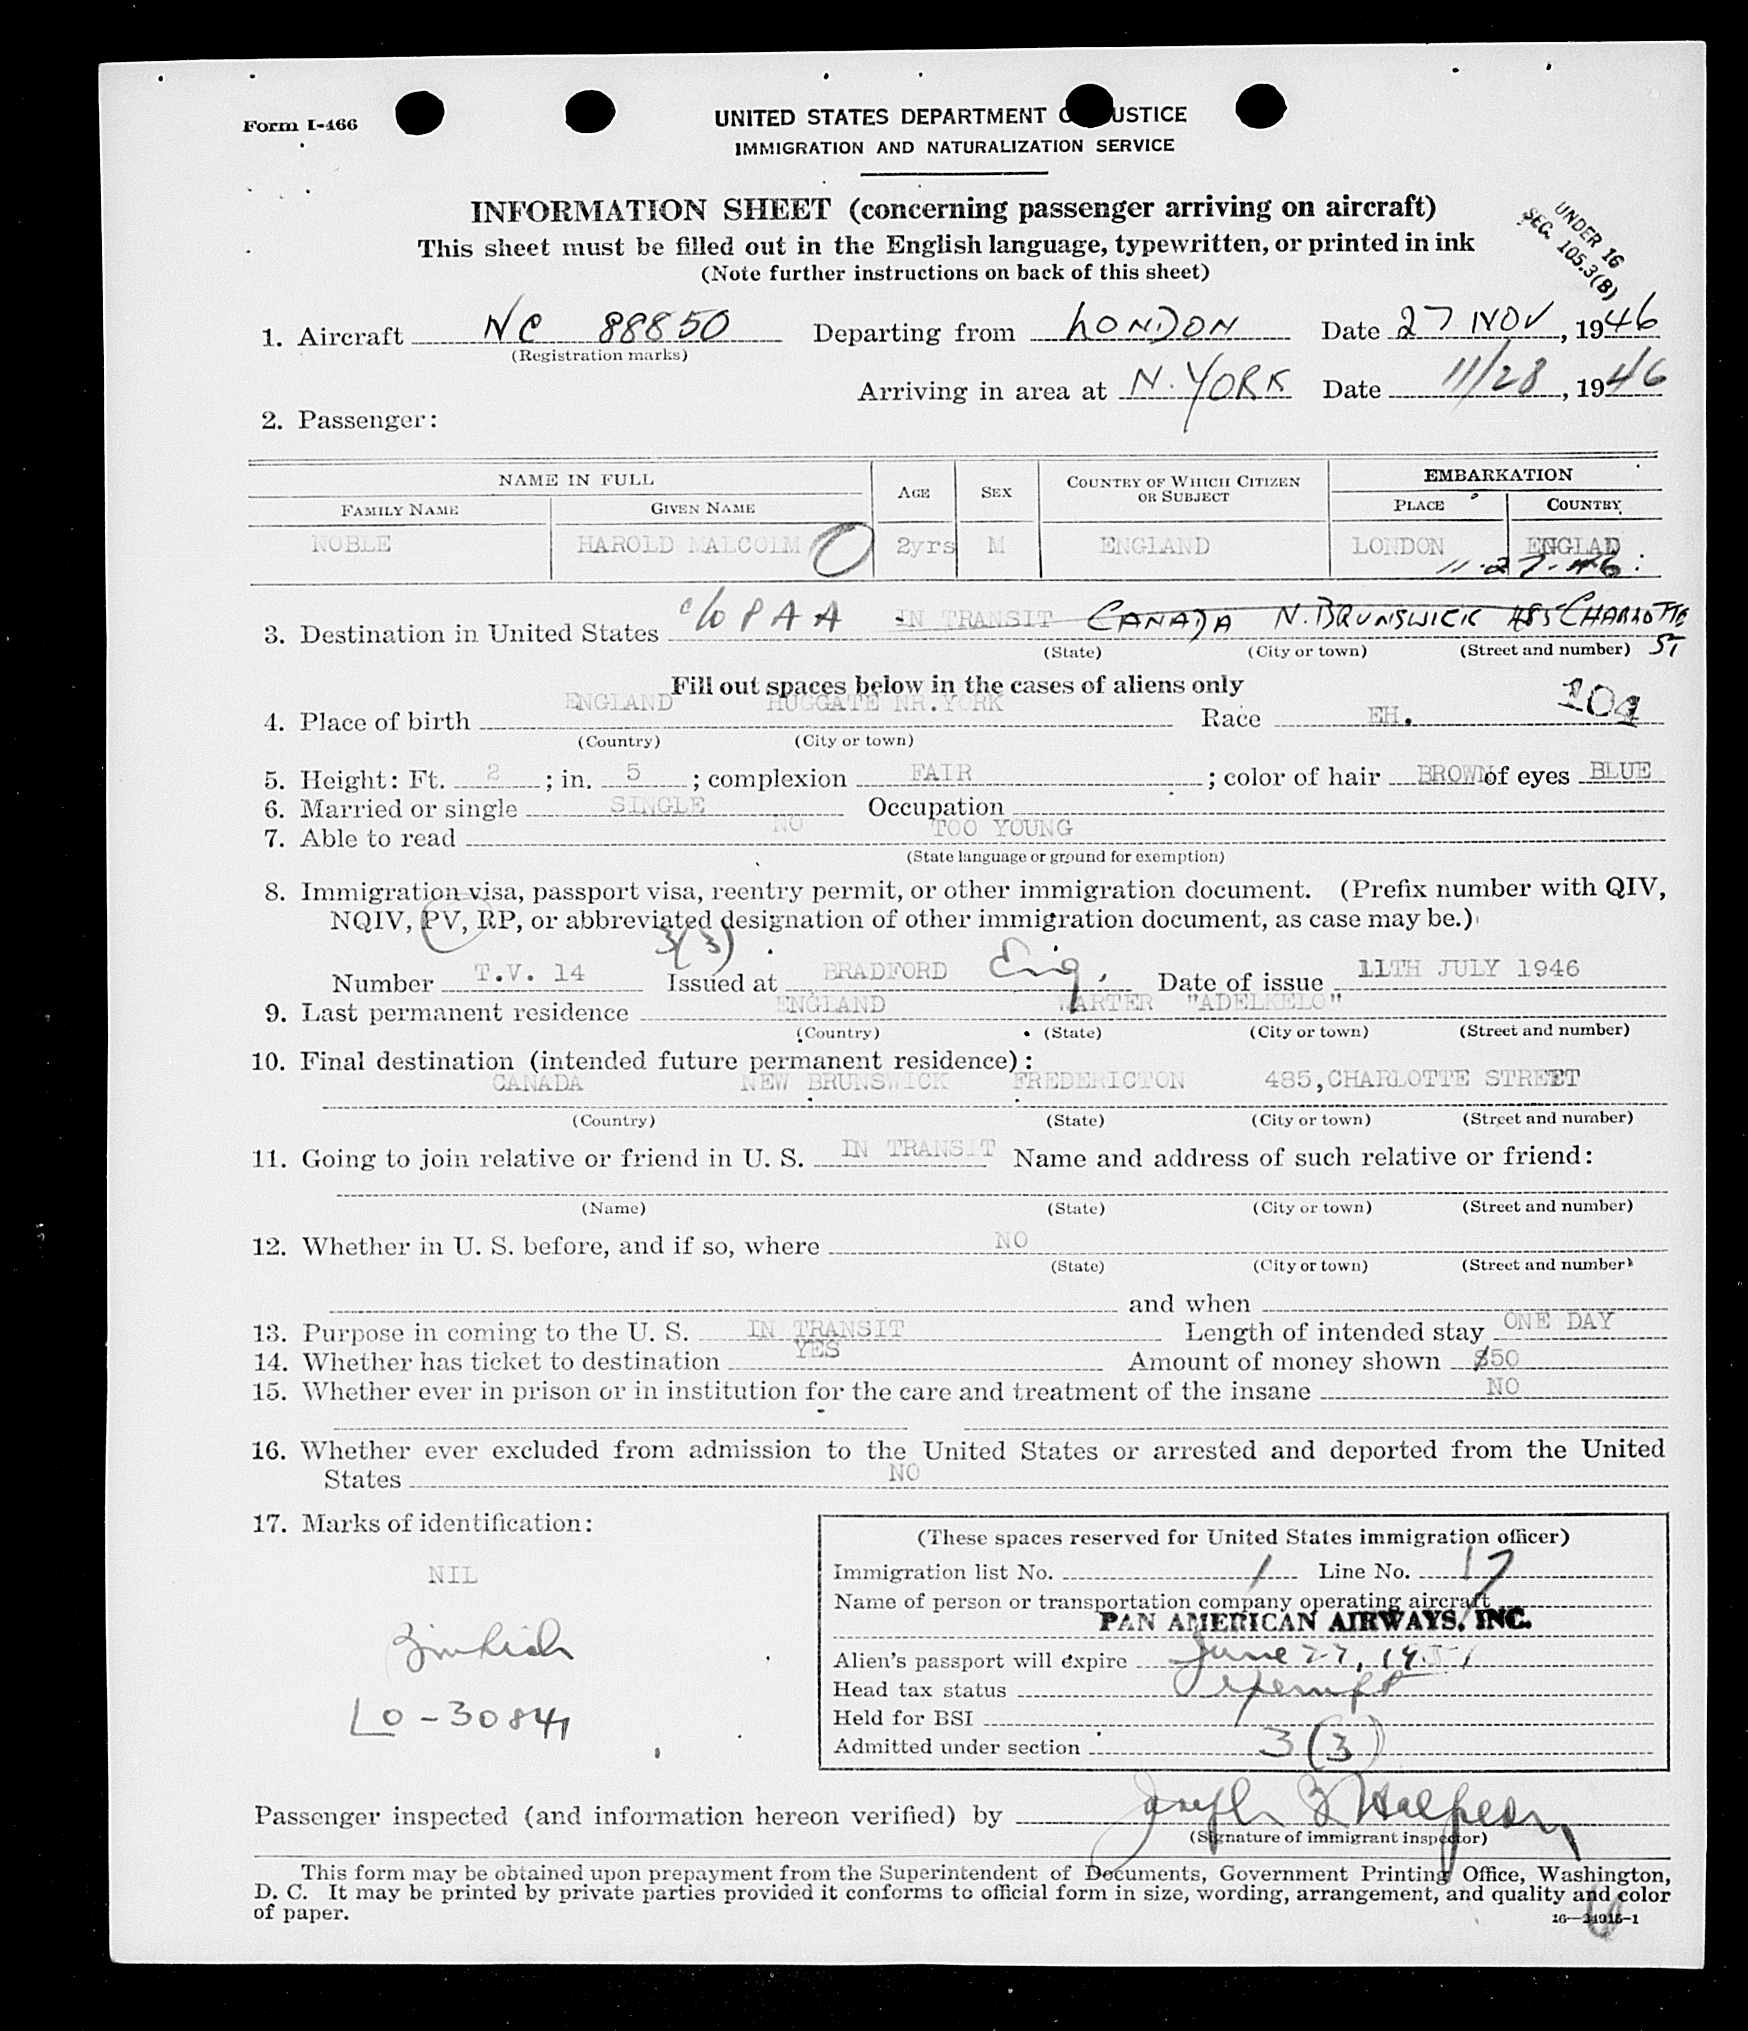 Form I-466
UNITED STATES DEPARTMENT O USTICE
IMMIGRATION AND NATURALIZATION SERVICE
INFORMATION SHEET (concerning passenger arriving on aircraft)
This sheet must be filled out in the English language, typewritten, or printed in ink
(Note further instructions on back of this sheet)
UNDER 16
SEC. 105.3(B)
1. Aircraft NC 88850 Departing from LONDON Date 27 NOV, 1946
(Registration marks)
Arriving in area at N. YORK Date 11/28, 1946
2. Passenger:
NAME IN FULL AGE SEX COUNTRY OF WHICH CITIZEN OR SUBJECT EMBARKATION
FAMILY NAME GIVEN NAME PLACE COUNTRY
NOBLE HAROLD MALCOLM 2yrs M ENGLAND LONDON ENGLAD
11-27-46
3. Destination in United States c/o PAA IN TRANSIT CANADA N. BRUNSWICK 485 CHARLOTTE ST
(State) (City or town) (Street and number)
Fill out spaces below in the cases of aliens only
4. Place of birth ENGLAND HUGGATE NR.YORK Race EH.
(Country) (City or town)
5. Height: Ft. 2; in. 5; complexion FAIR; color of hair BROWN of eyes BLUE
6. Married or single SINGLE Occupation
7. Able to read NO TOO YOUNG
(State language or ground for exemption)
8. Immigration visa, passport visa, reentry permit, or other immigration document. (Prefix number with QIV,
NQIV, PV, RP, or abbreviated designation of other immigration document, as case may be.)
3(3)
Number T.V. 14 Issued at BRADFORD Eng. Date of issue 11TH JULY 1946
9. Last permanent residence ENGLAND WARTER "ADELKELO"
(Country) (State) (City or town) (Street and number)
10. Final destination (intended future permanent residence):
CANADA NEW BRUNSWICK FREDERICTON 485,CHARLOTTE STREET
(Country) (State) (City or town) (Street and number)
11. Going to join relative or friend in U. S. IN TRANSIT Name and address of such relative or friend:
(Name) (State) (City or town) (Street and number)
12. Whether in U. S. before, and if so, where NO
(State) (City or town) (Street and number)
and when
13. Purpose in coming to the U. S. IN TRANSIT Length of intended stay ONE DAY
14. Whether has ticket to destination YES Amount of money shown $50
15. Whether ever in prison or in institution for the care and treatment of the insane NO
16. Whether ever excluded from admission to the United States or arrested and deported from the United
States NO
17. Marks of identification:
NIL
LO-30841
(These spaces reserved for United States immigration officer)
Immigration list No. 1 Line No. 17
Name of person or transportation company operating aircraft
PAN AMERICAN AIRWAYS, INC.
Alien's passport will expire June 27, 1951
Head tax status exempt
Held for BSI
Admitted under section 3(3)
Passenger inspected (and information hereon verified) by Joseph Z Halpern
(Signature of immigrant inspector)
This form may be obtained upon prepayment from the Superintendent of Documents, Government Printing Office, Washington,
D. C. It may be printed by private parties provided it conforms to official form in size, wording, arrangement, and quality and color
of paper.